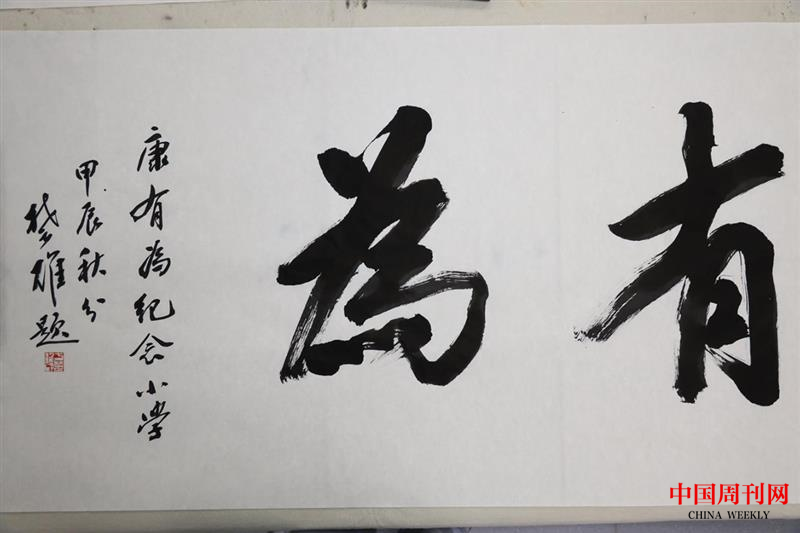 有為
康有為纪念小學
甲辰秋分
楚雄題
中国周刊网
CHINA WEEKLY